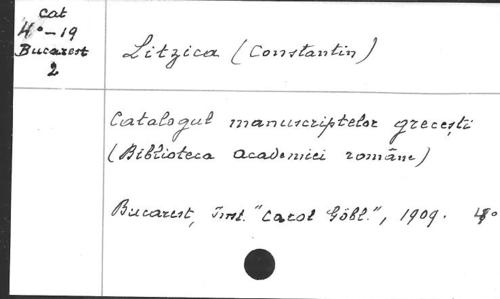 Cat
4° - 19
Bucarest
2
Litzica (Constantin)
Catalogul manuscriptelor grecești
(Biblioteca academiei române)
Bucarest, inst. "Carol Göbl.", 1909. 4°